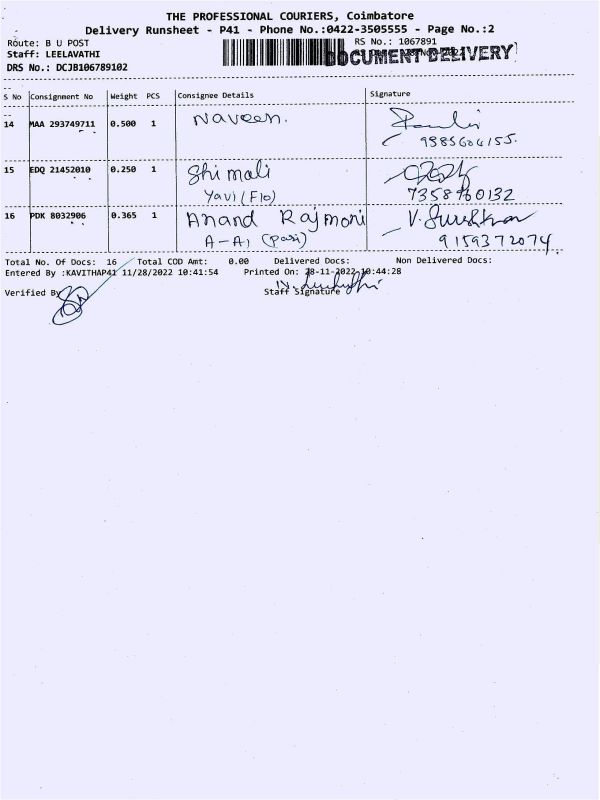 THE PROFESSIONAL COURIERS, Coimbatore
Delivery Runsheet - P41 - Phone No.:0422-3505555 - Page No.:2
Route: B U POST
RS No.: 1067891
Staff: LEELAVATHI
DOCUMENT DELIVERY
DRS No.: DCJB106789102
S No Consignment No Weight PCS Consignee Details Signature
14 MAA 293749711 0.500 1 Naveen.
9585604155.
15 EDQ 21452010 0.250 1 Shimali
Yavi (Flo) 7358960132
16 PDK 8032906 0.365 1 Anand Rajmoni
A-A1 (Pari) 9159372074.
Total No. Of Docs: 16 Total COD Amt: 0.00 Delivered Docs: Non Delivered Docs:
Entered By :KAVITHAP41 11/28/2022 10:41:54 Printed On: 28-11-2022 10:44:28
Verified By Staff Signature